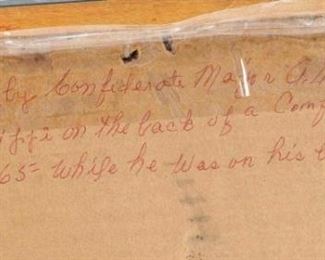 by Confederate Major
ippi on the back of a Comp
65- while he was on his